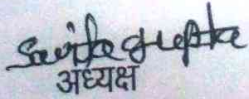 Savita Gupta
अध्यक्ष